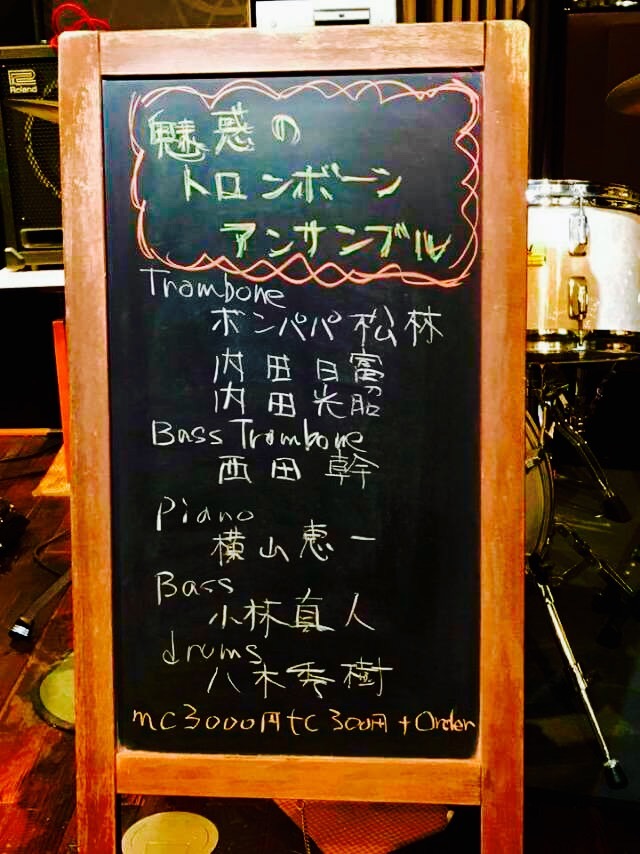 Roland
魅惑の
トロンボーン
アンサンブル
Trombone
ボンパパ松林
内田日富
内田光昭
Bass Trombone
西田幹
Piano
横山恵一
Bass
小林真人
drums
八木秀樹
mc3000円tc300円+Order